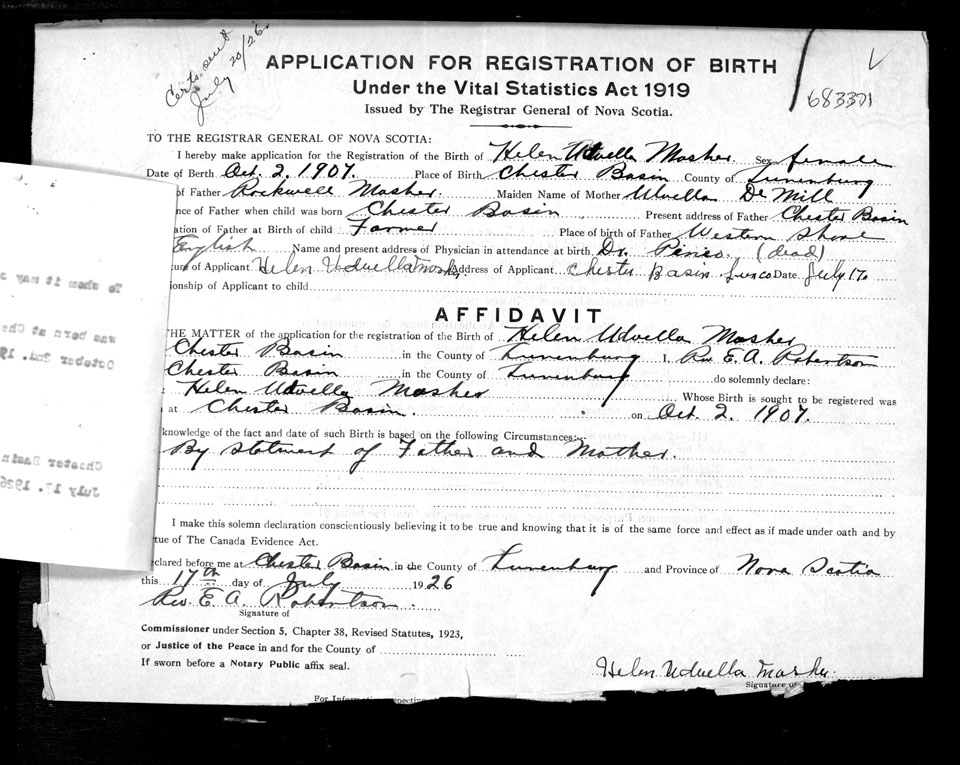 Certs. sent
July 20/26.
683371
APPLICATION FOR REGISTRATION OF BIRTH
Under the Vital Statistics Act 1919
Issued by The Registrar General of Nova Scotia.
TO THE REGISTRAR GENERAL OF NOVA SCOTIA:
I hereby make application for the Registration of the Birth of Helen Udvella Mosher Sex female
Date of Berth Oct. 2. 1907. Place of Birth Chester Basin County of Lunenburg
of Father Rockwell Mosher. Maiden Name of Mother Udvella De Mill
nce of Father when child was born Chester Basin Present address of Father Chester Basin
ation of Father at Birth of child Farmer Place of birth of Father Western Shore
English Name and present address of Physician in attendance at birth Dr. (dead)
ture of Applicant Helen Udvella Mosher. Address of Applicant Chester Basin Lun co Date July 17
ionship of Applicant to child
AFFIDAVIT
THE MATTER of the application for the registration of the Birth of Helen Udvella Mosher
Chester Basin in the County of Lunenburg I, Rev. E. A. Robertson
Chester Basin in the County of Lunenburg do solemnly declare:
Helen Udvella Mosher Whose Birth is sought to be registered was
at Chester Basin. on Oct. 2. 1907.
knowledge of the fact and date of such Birth is based on the following Circumstances:
By statment of Father and Mother.
I make this solemn declaration conscientiously believing it to be true and knowing that it is of the same force and effect as if made under oath and by
tue of The Canada Evidence Act.
eclared before me at Chester Basin in the County of Lunenburg and Province of Nova Scotia
this 17th day of July 1926
Rev. E. A. Robertson.
Signature of
Commissioner under Section 5, Chapter 38, Revised Statutes, 1923,
or Justice of the Peace in and for the County of
If sworn before a Notary Public affix seal.
Helen Udvella Mosher.
Signature of
For Information
To whom it may c
was born at Che
October 2nd. 19
Chester Basin
July 17. 1926